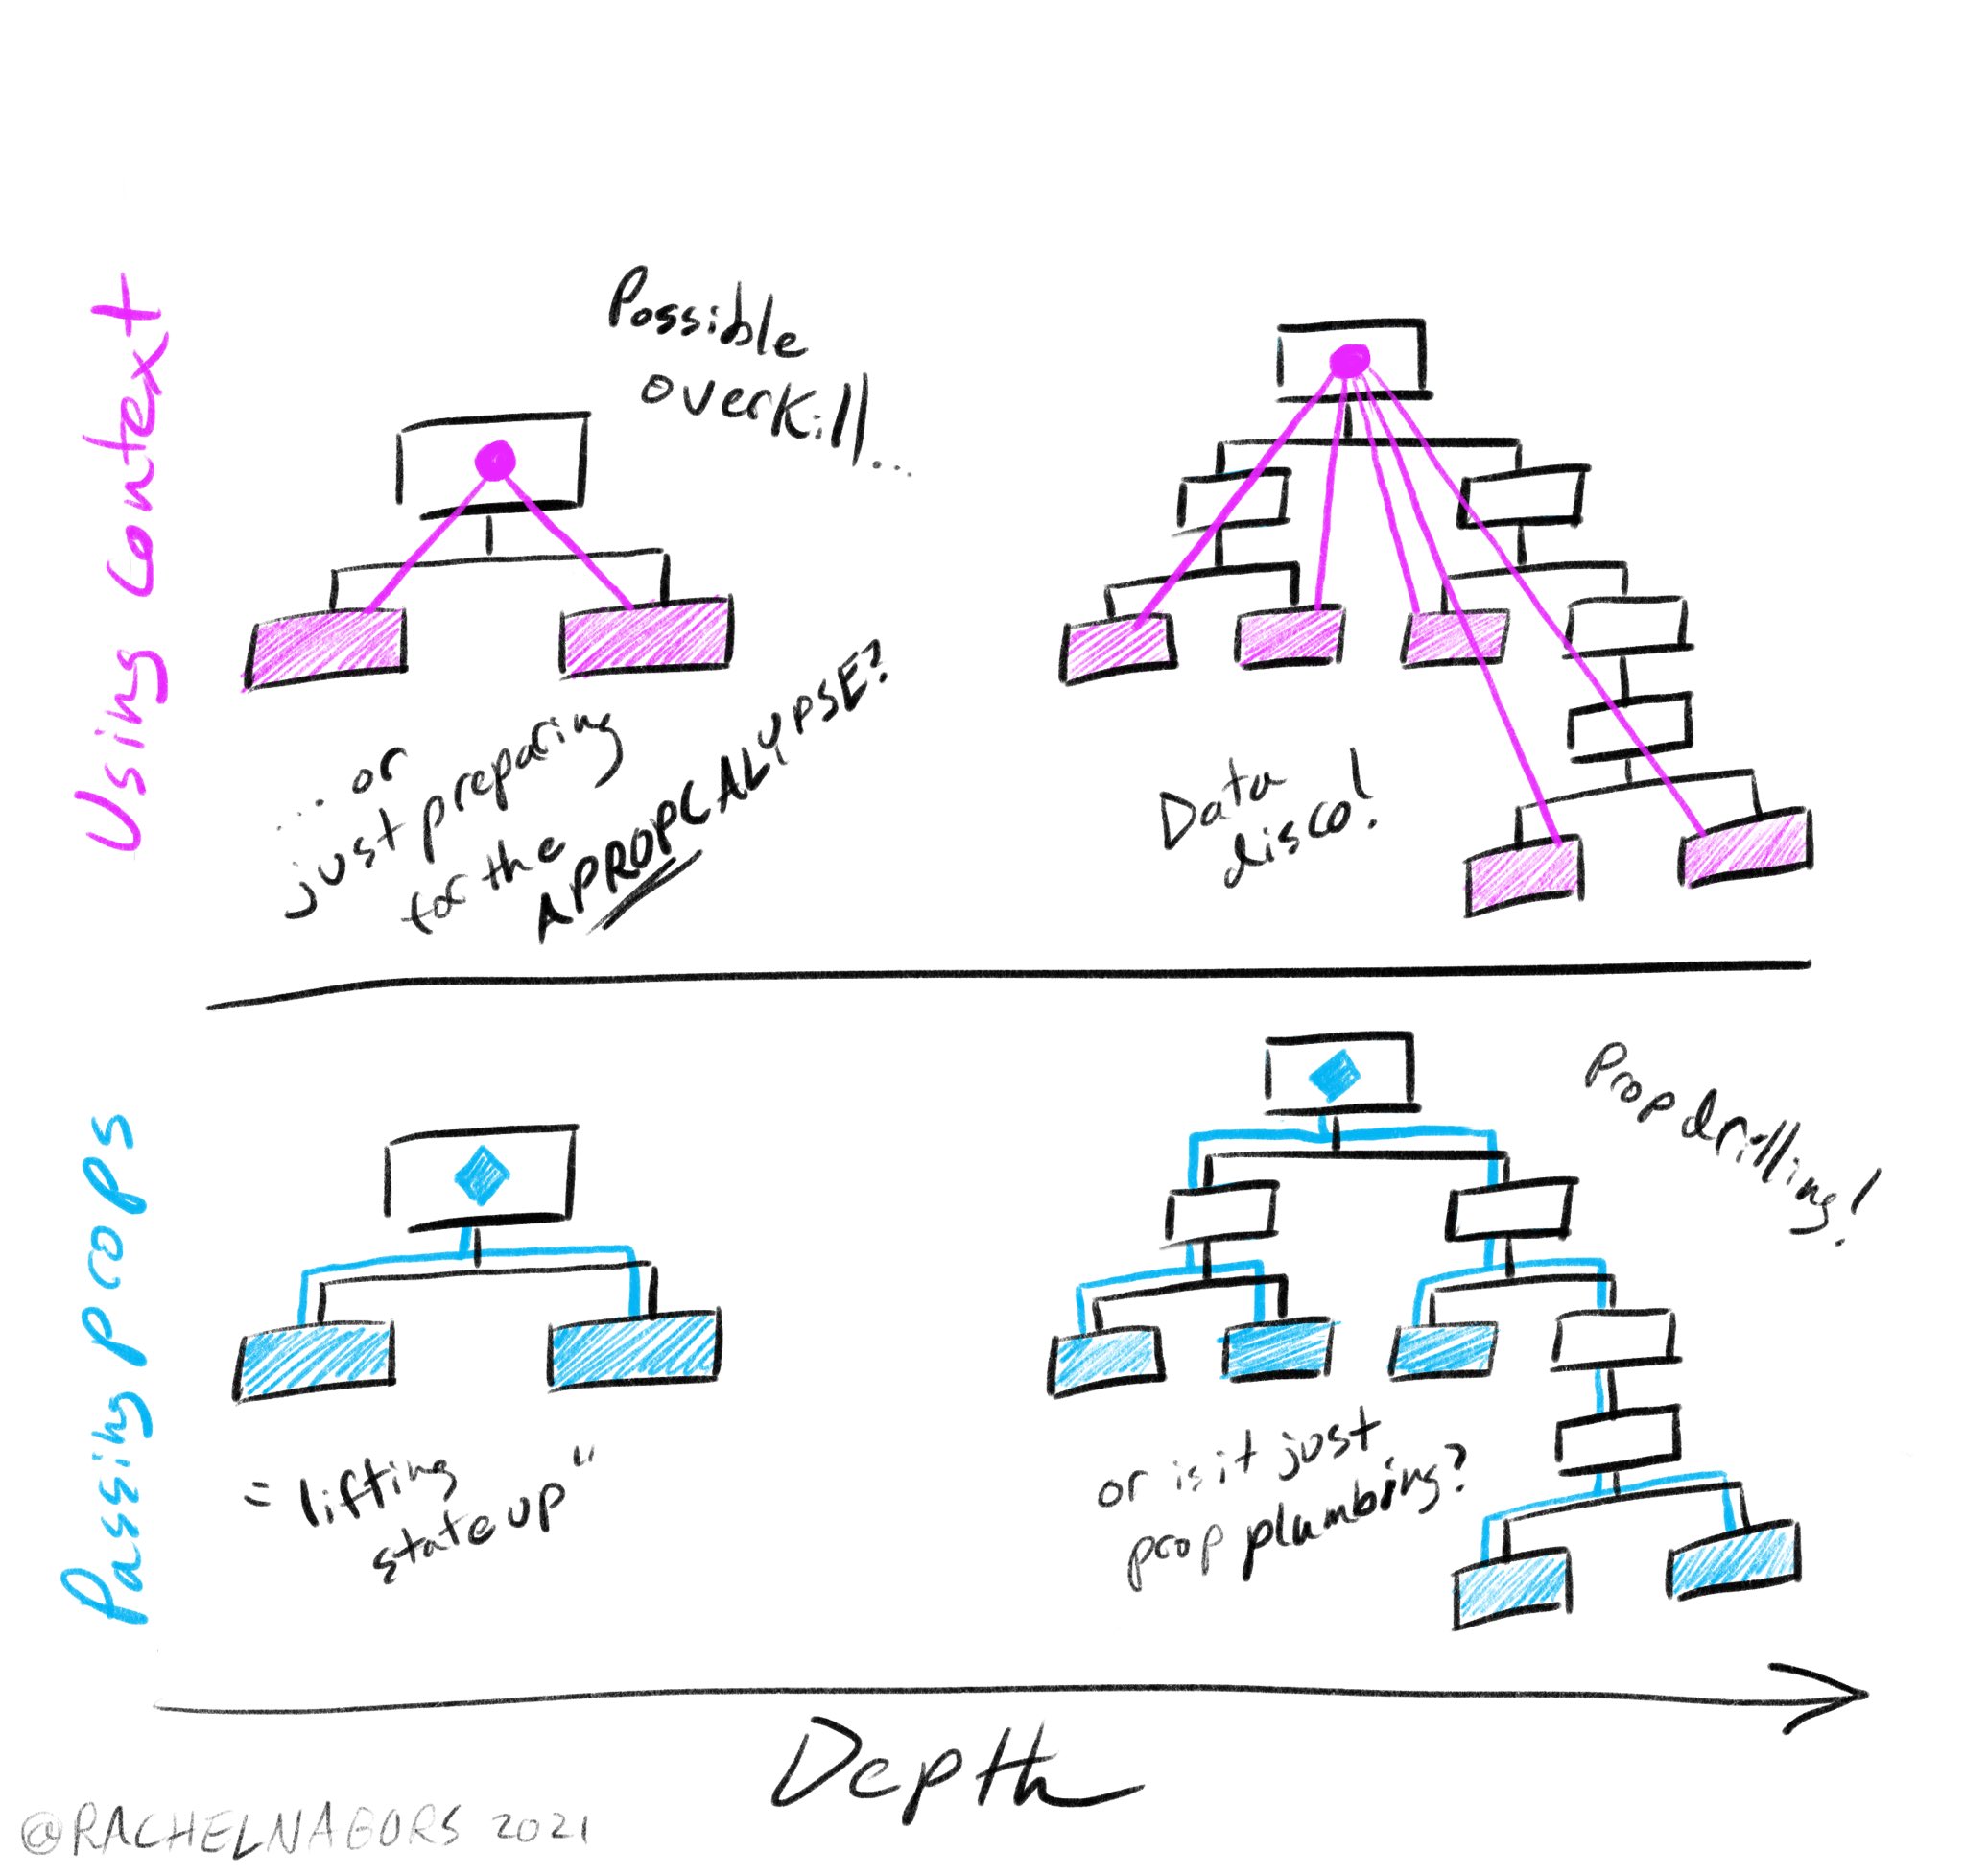 Using context
Possible
overkill...
... or
just preparing
for the
APROPCALYPSE?
Data
disco!
Passing props
= lifting
state up"
Prop drilling!
or is it just
prop plumbing?
Depth
@RACHELNABORS 2021